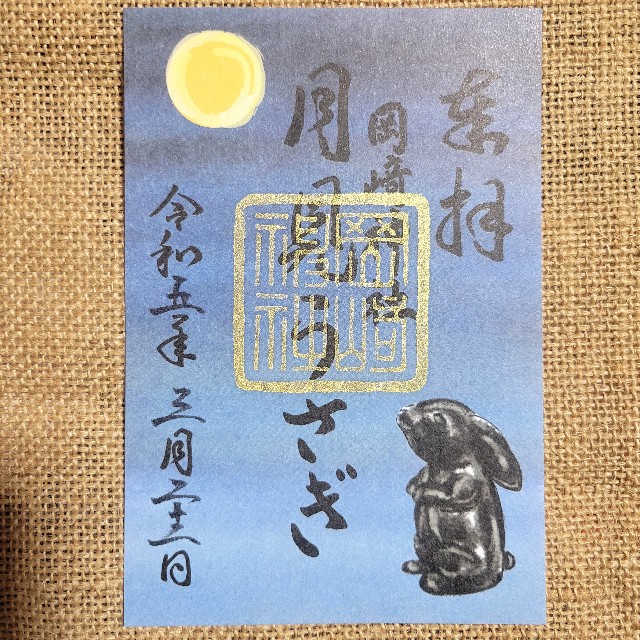 奉拝
岡崎神社
月見うさぎ
令和五年三月二十一日
岡崎
神社